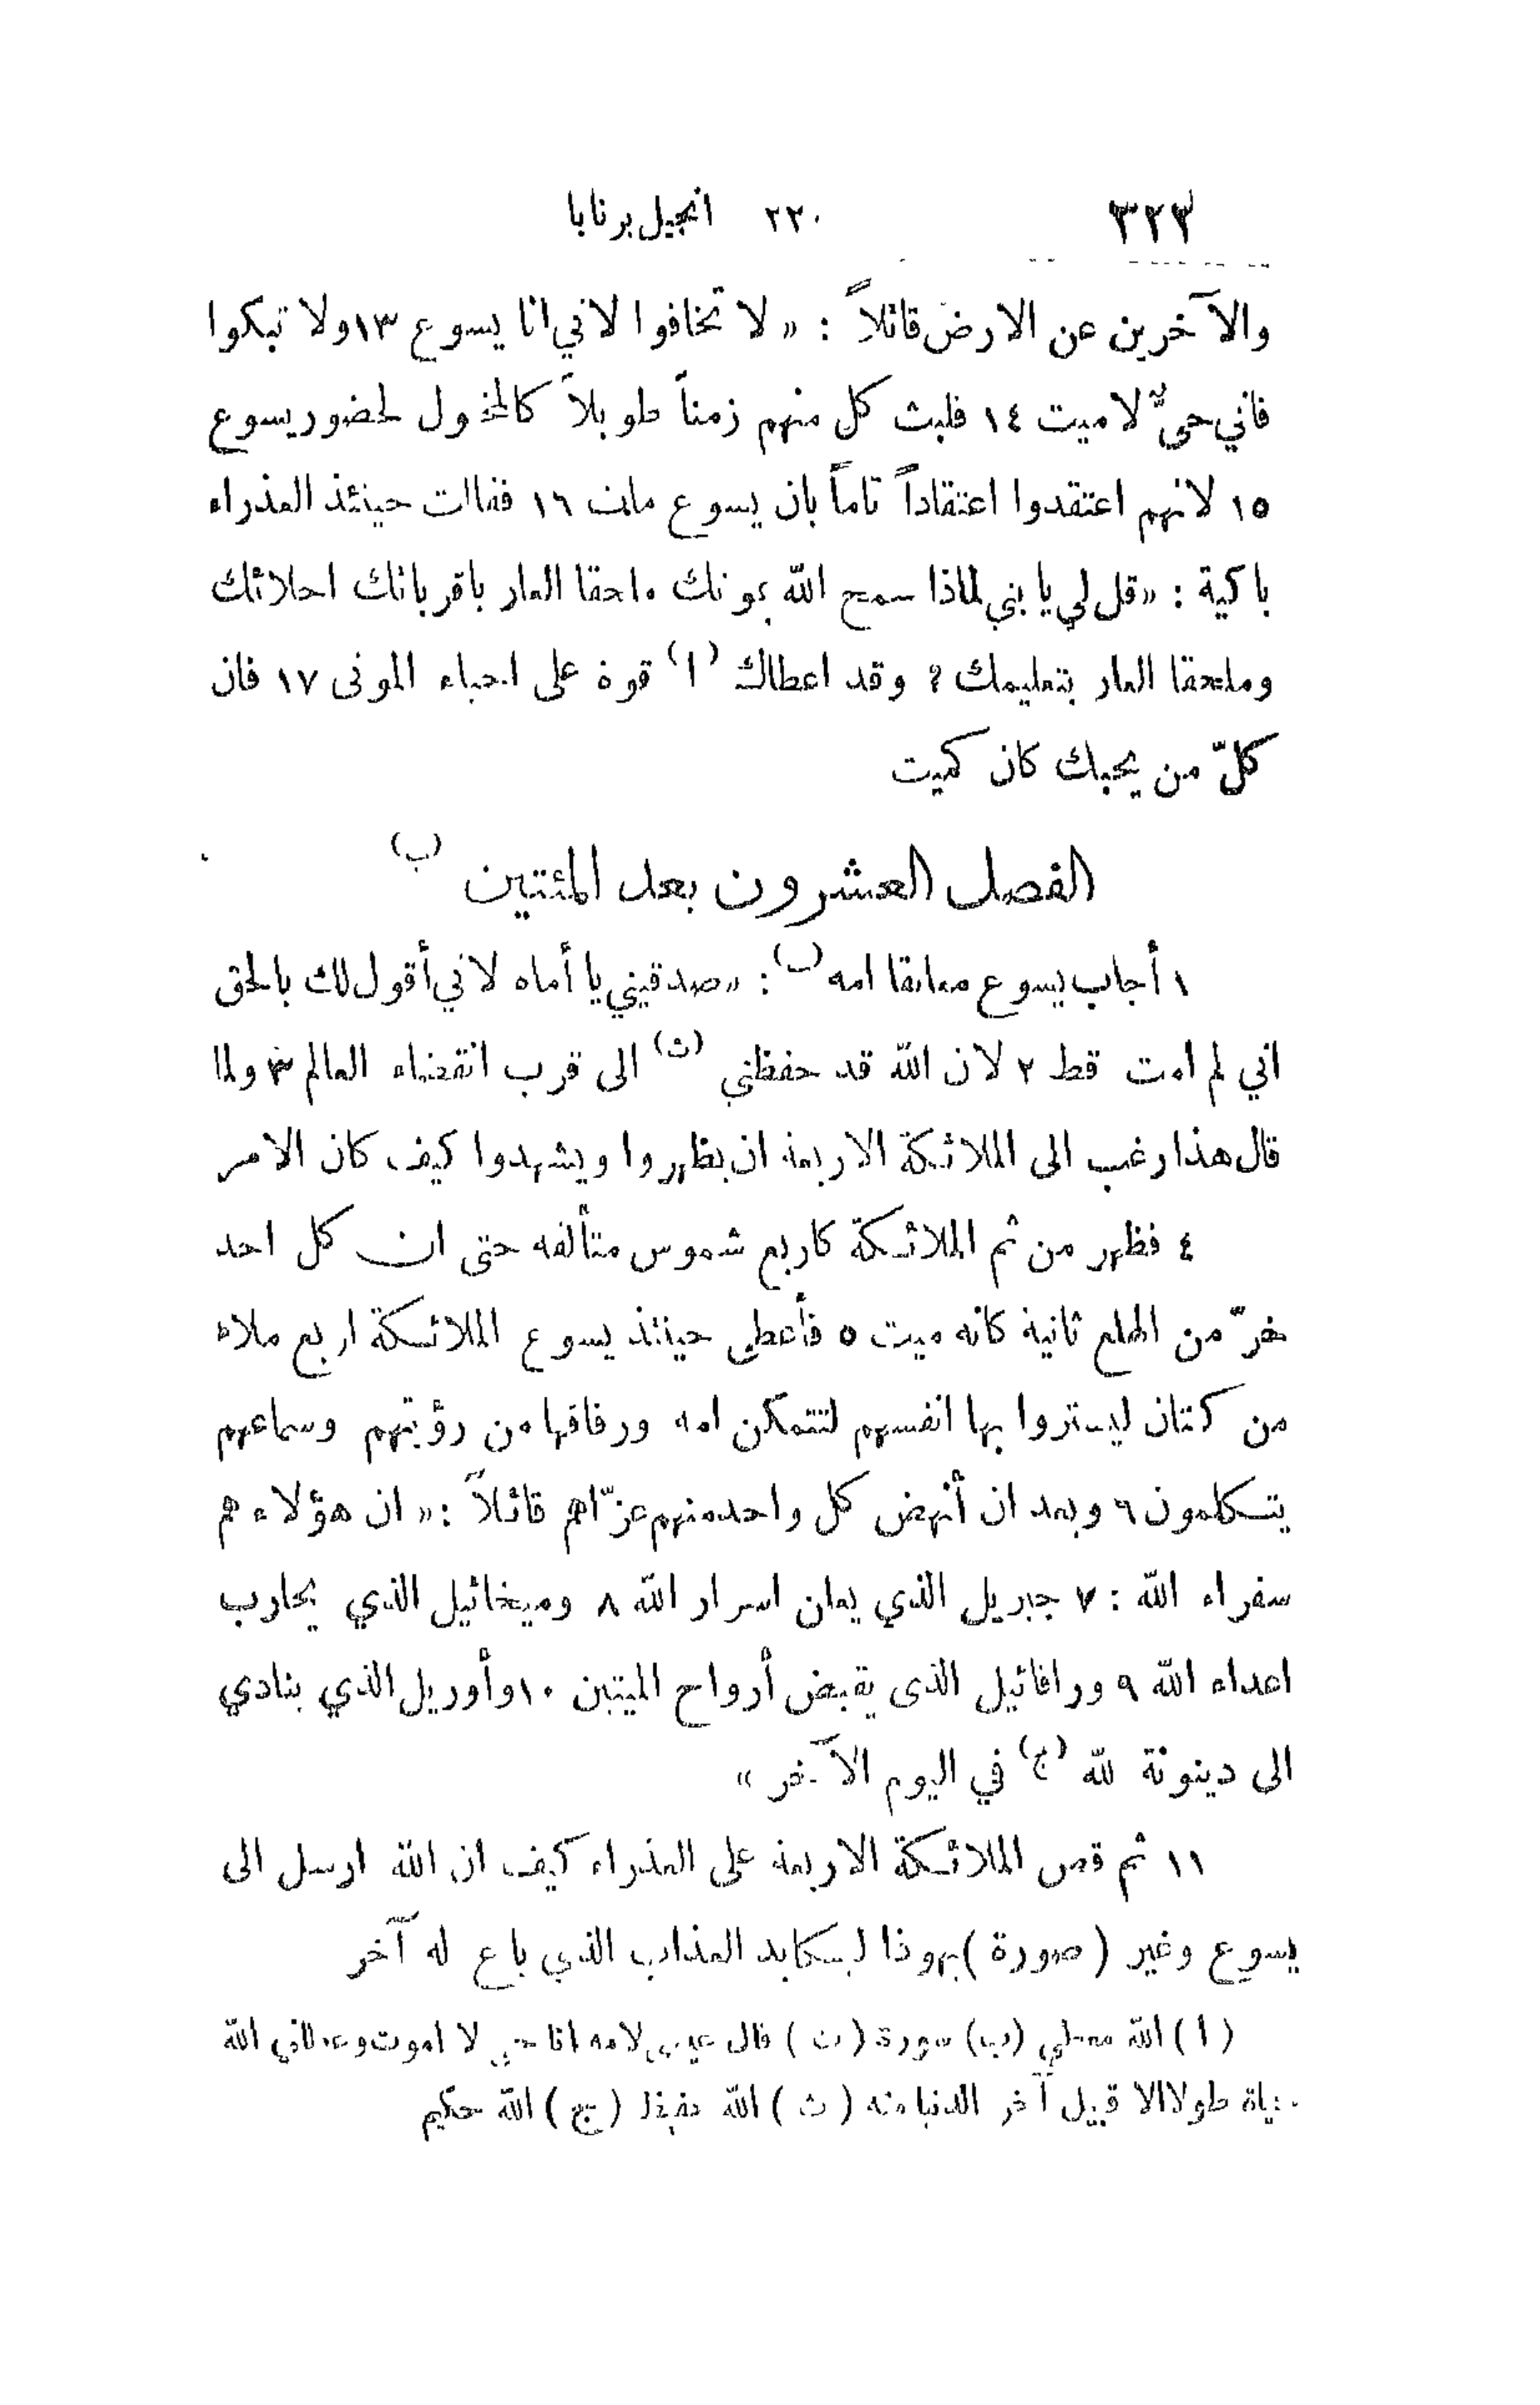 ٣٢٣ ٢٢٠ انجيل برنابا
والآخرين عن الارض قائلاً : « لا تخافوا لاني انا يسوع ١٣ ولا تبكوا
فاني حيٌّ لا ميت ١٤ فلبث كل منهم زمناً طويلاً كالمخبول لحضور يسوع
١٥ لانهم اعتقدوا اعتقاداً تاماً بان يسوع مات ١٦ فقالت حينئذ العذراء
باكية : « قل لي يا بني لماذا سمح الله بموتك ملحقا العار باقربائك اخلائك
وملحقا العار بتعليمك ؟ وقد اعطاك (١) قوة على احياء الموتى ١٧ فان
كلّ من يحبك كان كميت
الفصل العشرون بعد المئتين (ب)
١ أجاب يسوع معانقا امه (ت) : « صدقيني يا أماه لاني أقول لك بالحق
اني لم امت قط ٢ لان الله قد حفظني (ث) الى قرب انقضاء العالم ٣ ولما
قال هذا رغب الى الملائكة الاربعة ان يظهروا ويشهدوا كيف كان الامر
٤ فظهر من ثم الملائكة كاربع شموس متألقه حتى ان كل احد
خرّ من الهلع ثانية كانه ميت ٥ فأعطى حينئذ يسوع الملائكة اربع ملاء
من كتان ليستروا بها انفسهم لتتمكن امه ورفاقها من رؤيتهم وسماعهم
يتكلمون ٦ وبعد ان أنهض كل واحد منهم عزّاهم قائلاً : « ان هؤلاء هم
سفراء الله : ٧ جبريل الذي يعلن اسرار الله ٨ وميخائيل الذي يحارب
اعداء الله ٩ ورافائيل الذى يقبض أرواح الميتين ١٠ وأوريل الذي ينادي
الى دينونة لله (ج) في اليوم الآخر »
١١ ثم قص الملائكة الاربعة على العذراء كيف ان الله ارسل الى
يسوع وغير ( صورة ) يهوذا ليكابد العذاب الذي باع له آخر
( ا ) الله معطي (ب) سورة ( ت ) قال عيسى لامه انا حي لا اموت الله
طولا الا قبيل آخر الدنيا منه ( ث ) الله حفيظ ( ج ) الله حكيم